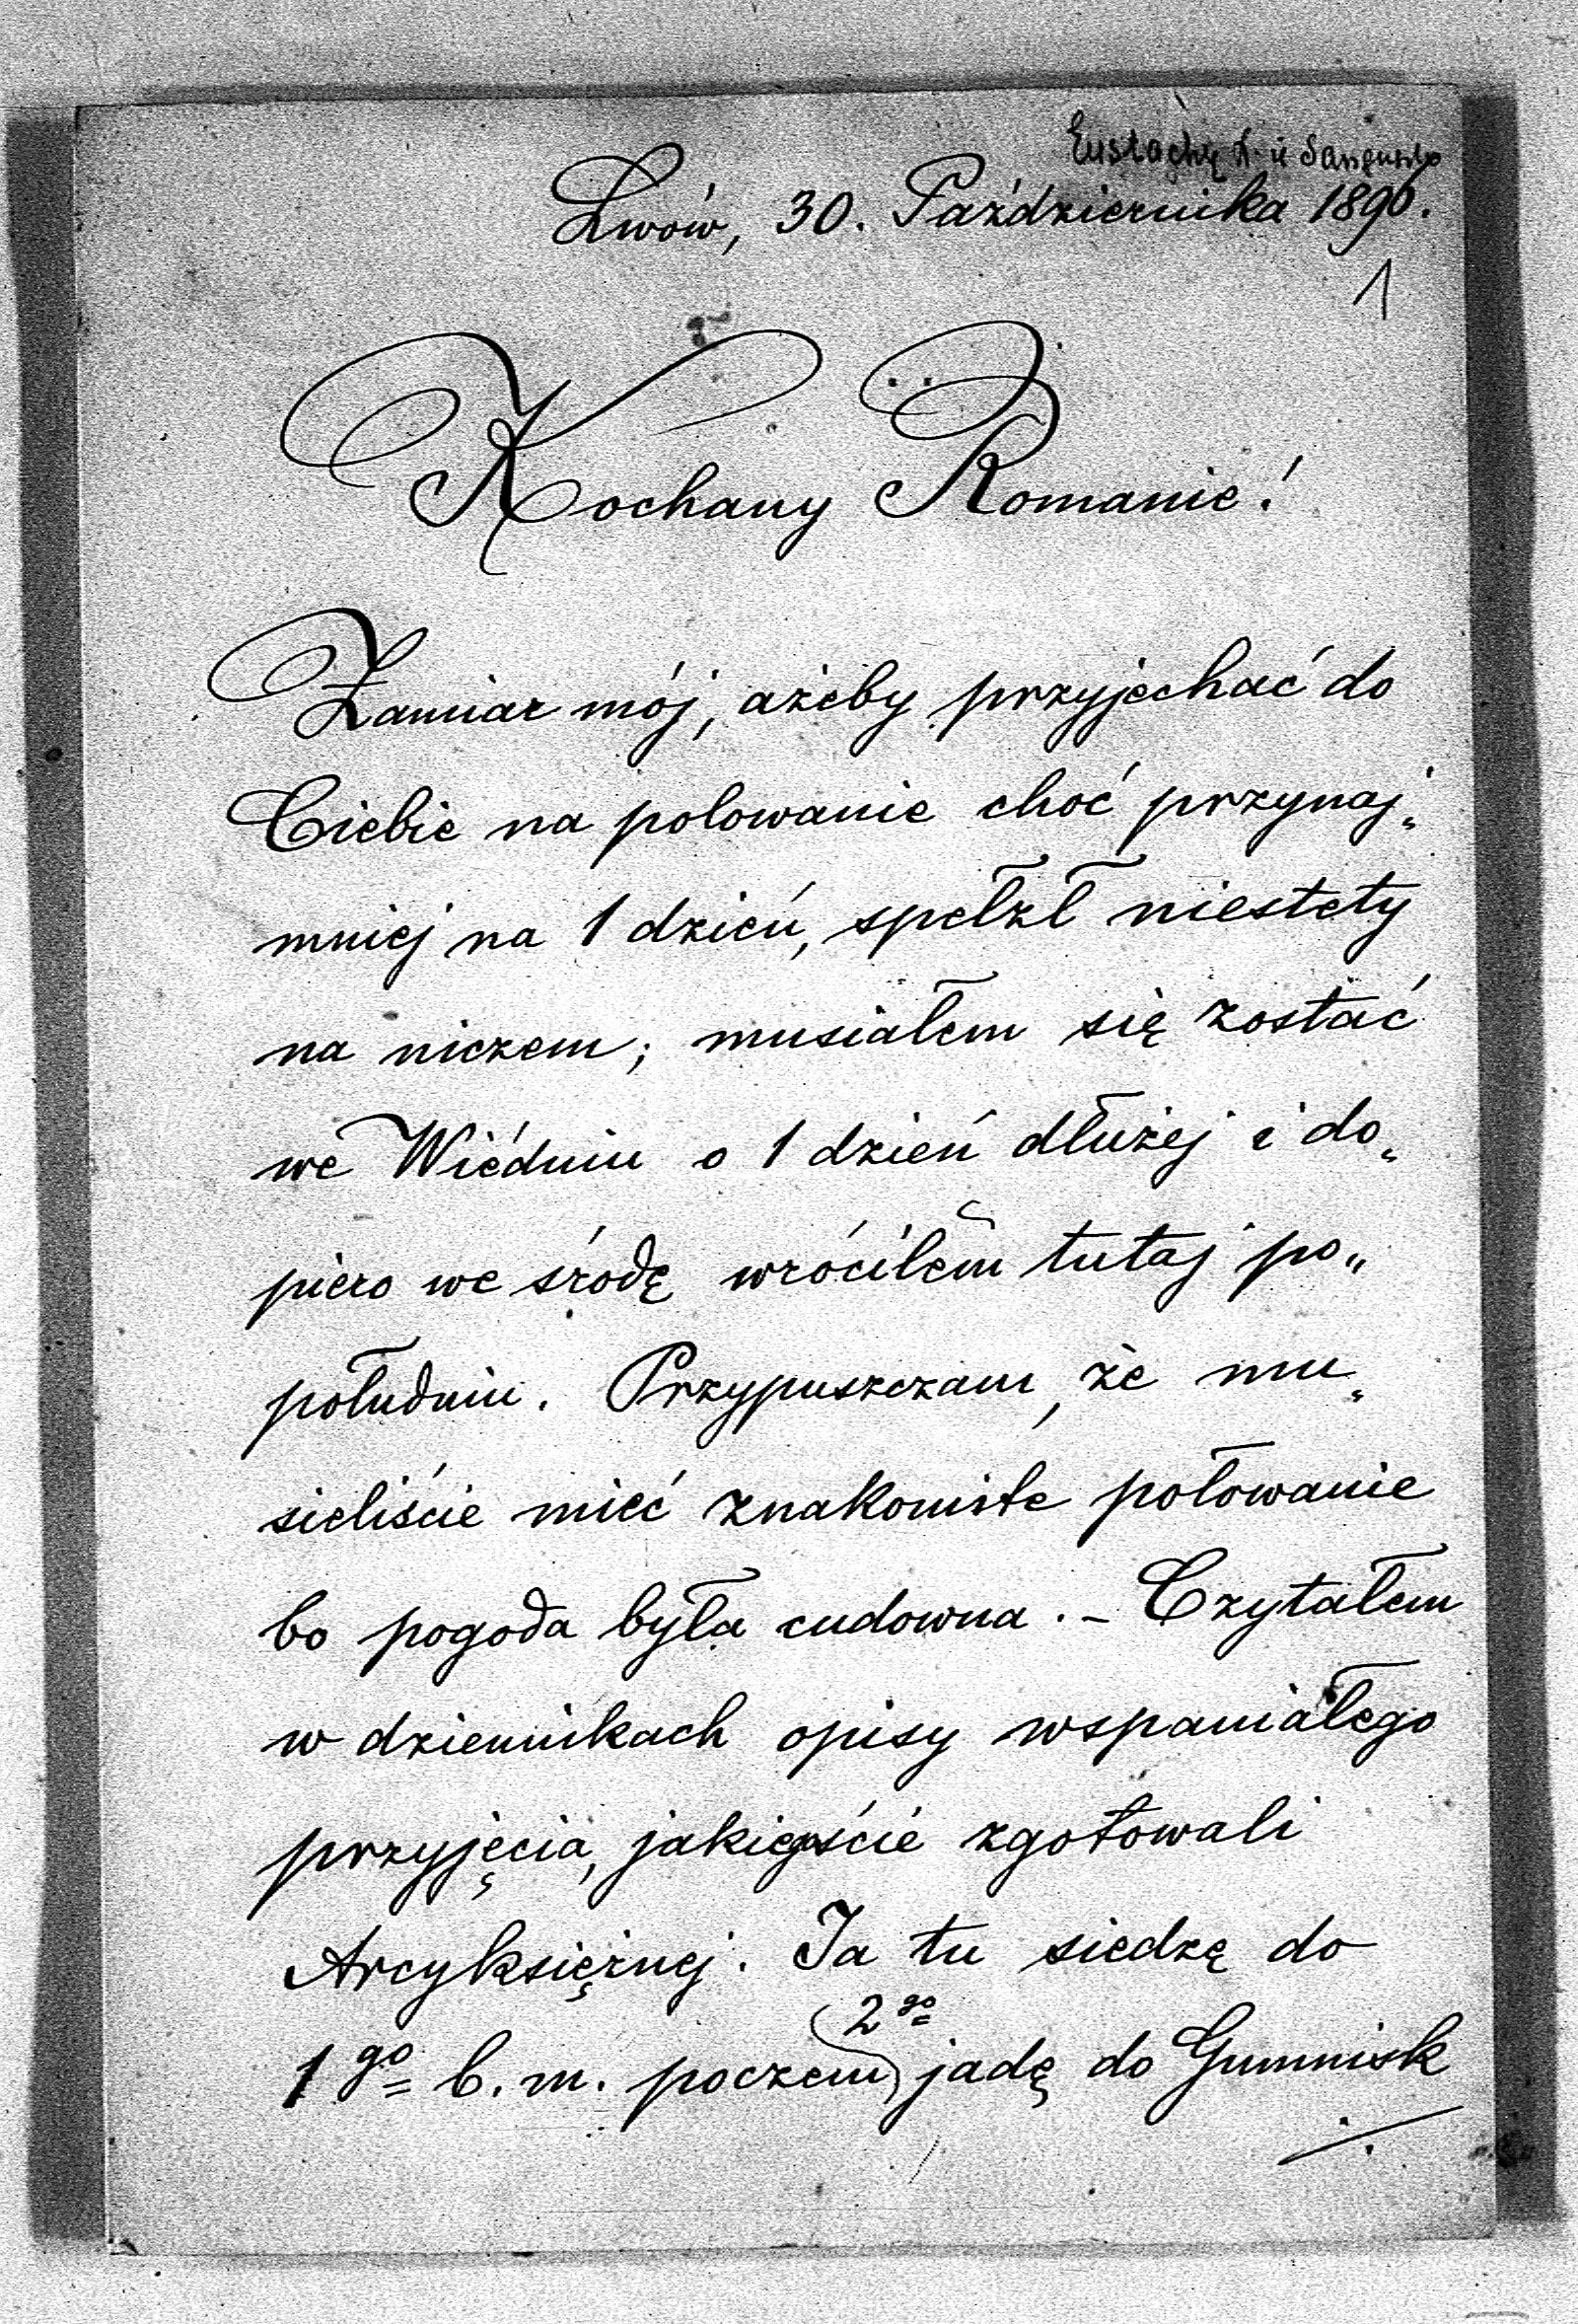 Eustachy Sanguszko
Lwów, 30. Października 1890.
1
Kochany Romanie!
Zamiar mój, ażeby przyjechać do
Ciebie na polowanie choć przynaj„
mniej na 1 dzień, spełzł niestety
na niczem; musiałem się zostać
we Wiédniu o 1 dzień dłużej i do„
piero we środę wróciłem tutaj po„
południu. Przypuszczam, że mu„
sieliście mieć znakomite połowanie
bo pogoda była cudowna. – Czytałem
w dziennikach opisy wspaniałego
przyjęcia, jakieście zgotowali
Arcyksiężnej. Ja tu siedzę do
2go
1go b. m. poczem jadę do Gumnisk
./.